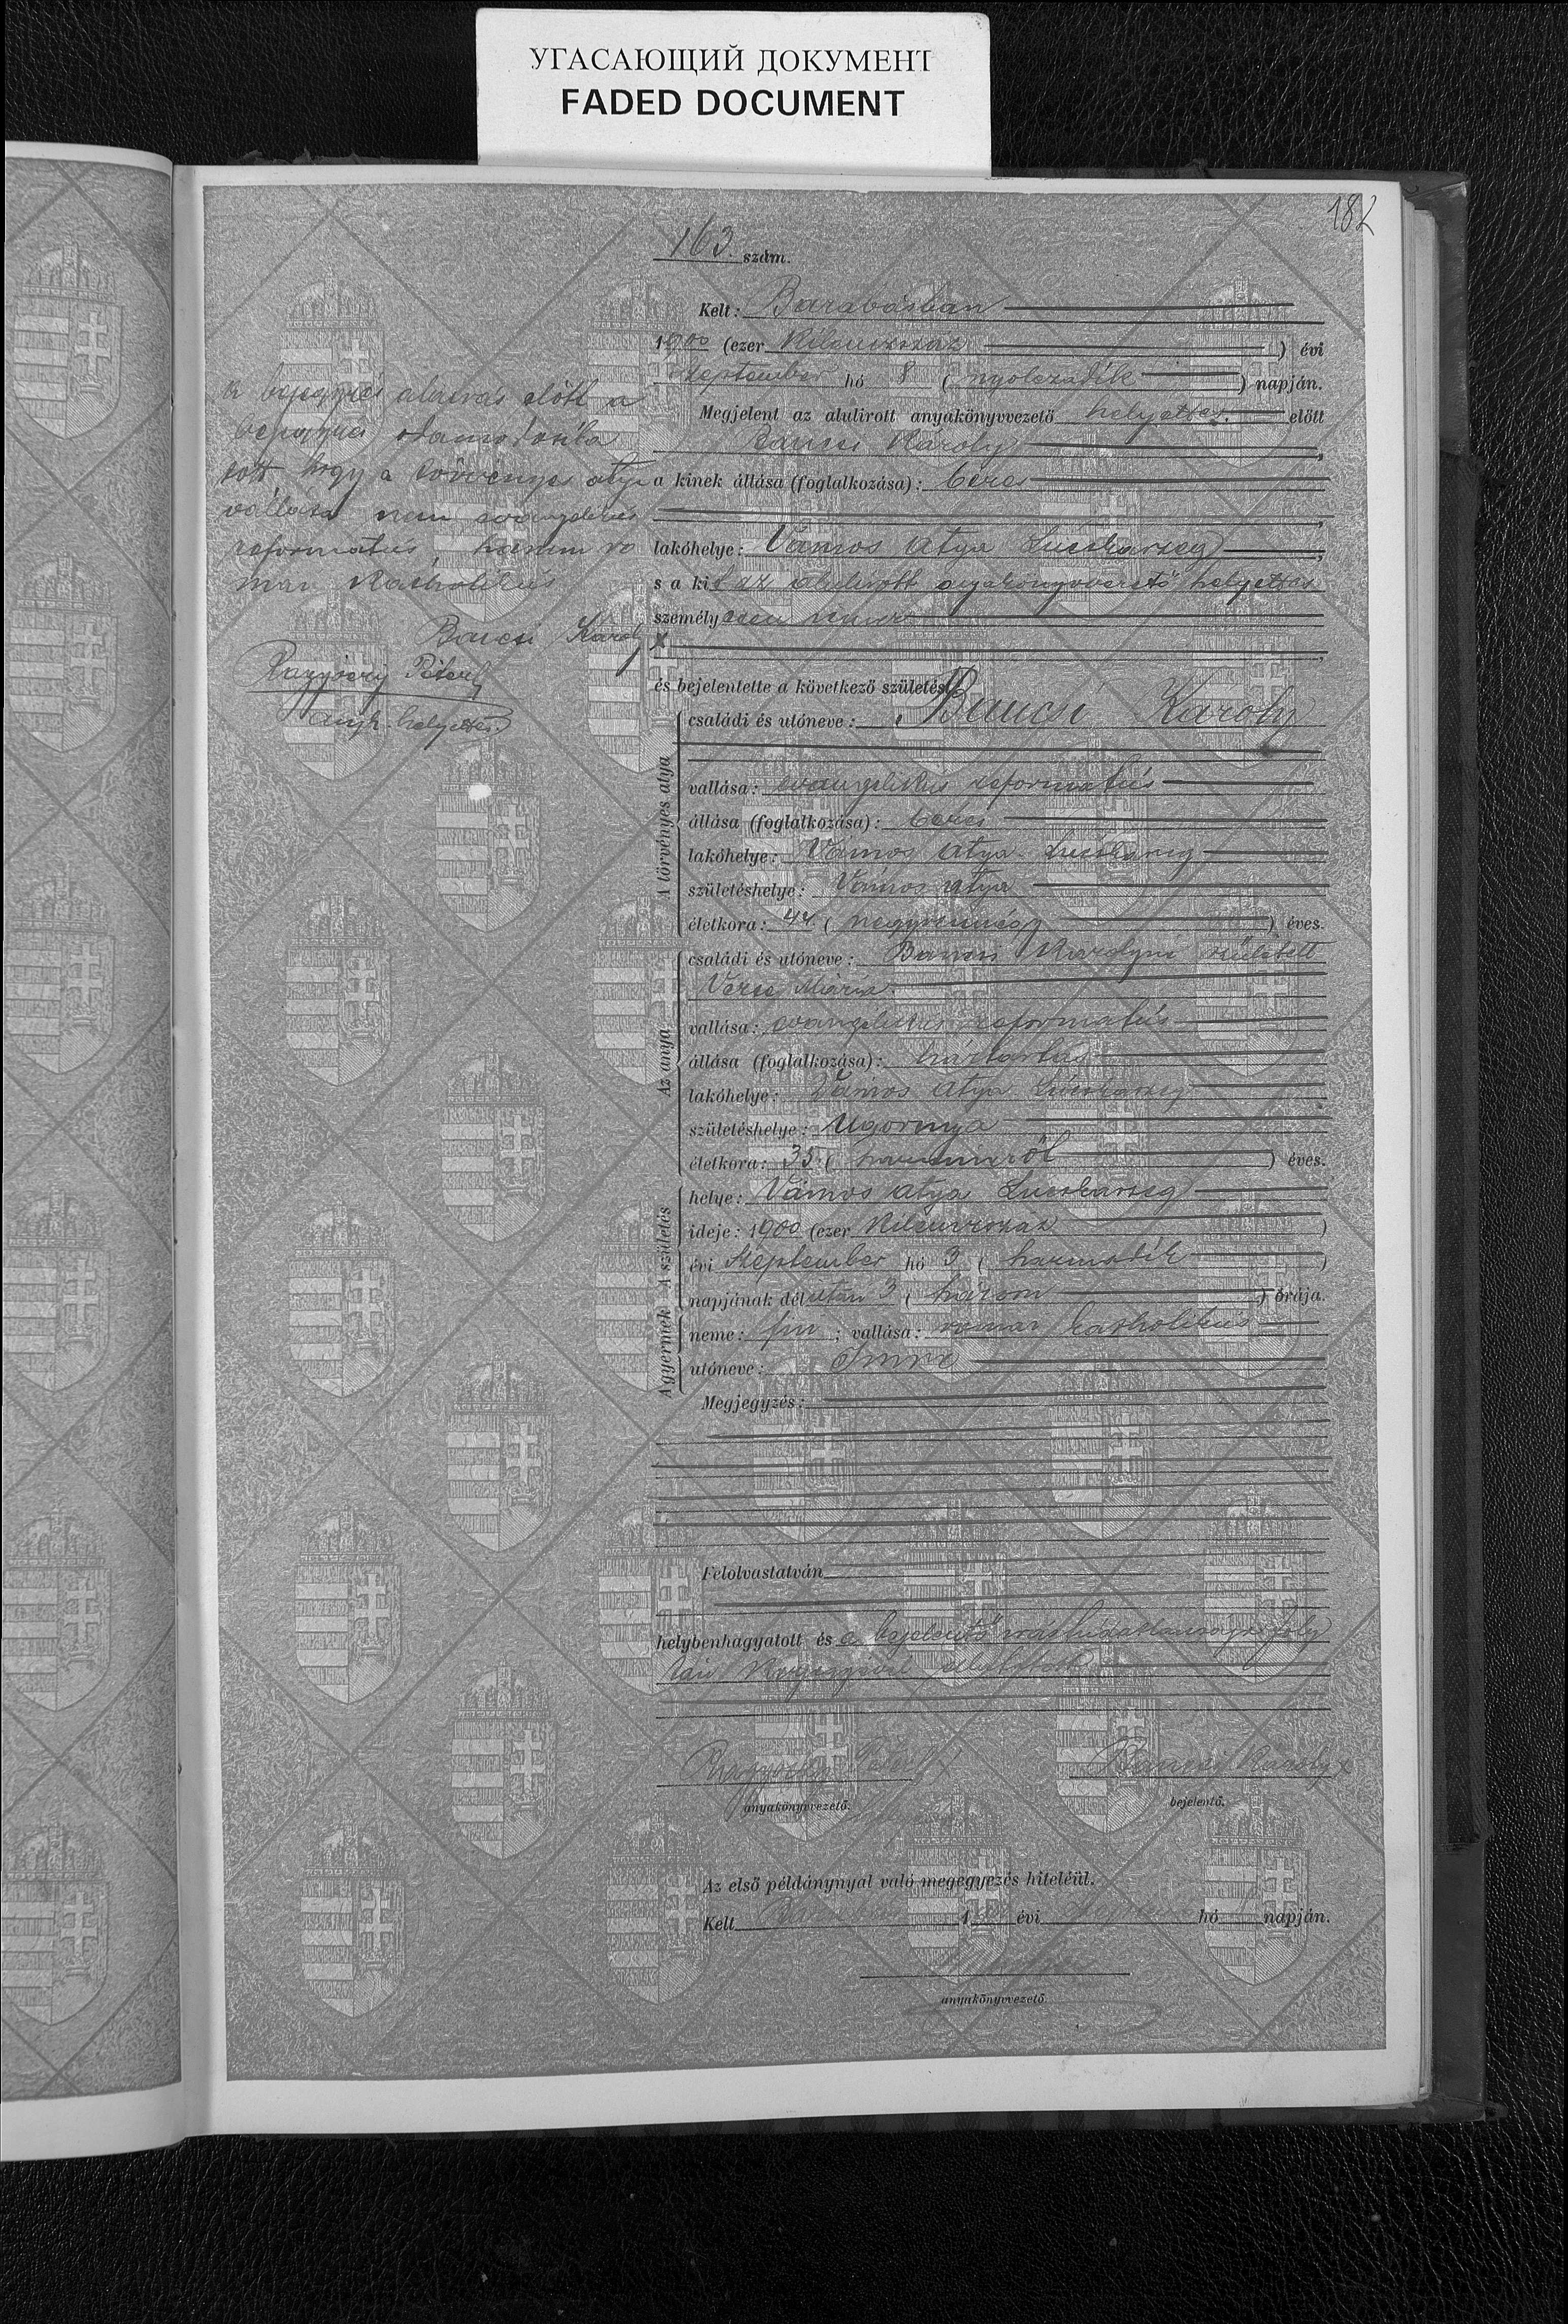 УГАСАЮЩИЙ ДОКУМЕНТ
FADED DOCUMENT
182
163. szám.
Kelt: Barabásban
1900 (ezer kilenczszáz) évi
Szeptember hó 8 (nyolczadik) napján.
Megjelent az alulirott anyakönyvvezető helyettes előtt
Bancsi Károly,
a kinek állása (foglalkozása): béres
lakóhelye: Vámos Atya Lucskaszeg,
s a kit az alulirott anyakönyvvezető helyettes
személyesen ismer
és bejelentette a következő születést:
A törvényes atya
családi és utóneve: Bancsi Károly
vallása: evangelikus református
állása (foglalkozása): béres
lakóhelye: Vámos Atya Lucskaszeg
születéshelye: Vámos Atya
életkora: 44 (negyvennégy) éves.
Az anya
családi és utóneve: Bancsi Károlyné született
Veres Mária
vallása: evangelikus református
állása (foglalkozása): háztartás
lakóhelye: Vámos Atya Lucskaszeg
születéshelye: Ugornya
életkora: 35 (harminczöt) éves.
A születés
helye: Vámos Atya Lucskaszeg
ideje: 1900 (ezer kilenczszáz)
évi Szeptember hó 3 (harmadik)
napjának délután 3 (három) órája.
A gyermek
neme: fiu; vallása: római katholikus
utóneve: Imre
Megjegyzés:
Felolvastatván
helybenhagyatott és a bejelentő írástudatlansága foly
tán kézjegyével elláttatott
Bancsi Károly x
anyakönyvvezető.
bejelentő.
Az első példánynyal való megegyezés hiteléül.
Kelt 1 évi hó napján.
anyakönyvvezető
A bejegyzés aláírás előtt a
bejegyzés odamódosítta
tott, hogy a törvényes atya
vállása nem evangelikus
református, hanem ró
mai katholikus
Bancsi Károly x
Péter
anyk. helyettes